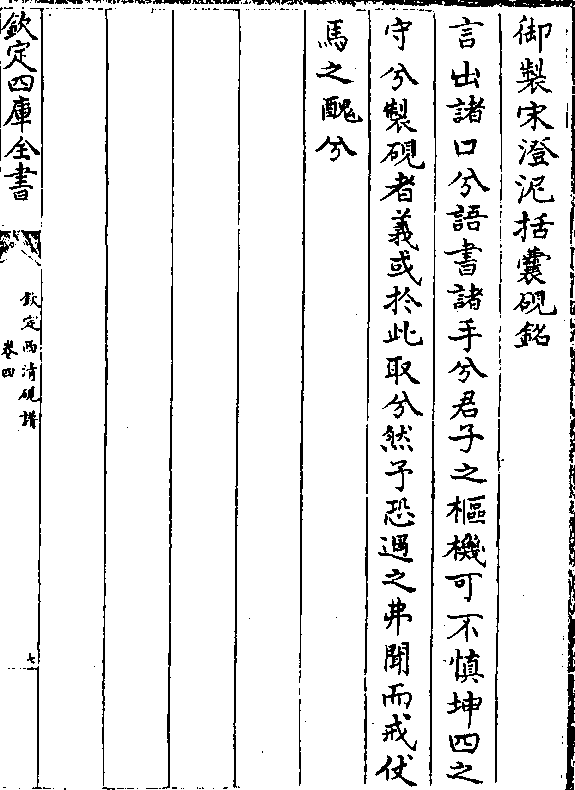 御製宋澄泥括囊硯銘
言出諸口兮語書諸手兮君子之樞機可不慎坤四之
守兮製硯者義或於此取兮然予恐過之弗聞而戒仗
馬之醜兮
欽定四庫全書
欽定西清硯譜
卷四
七